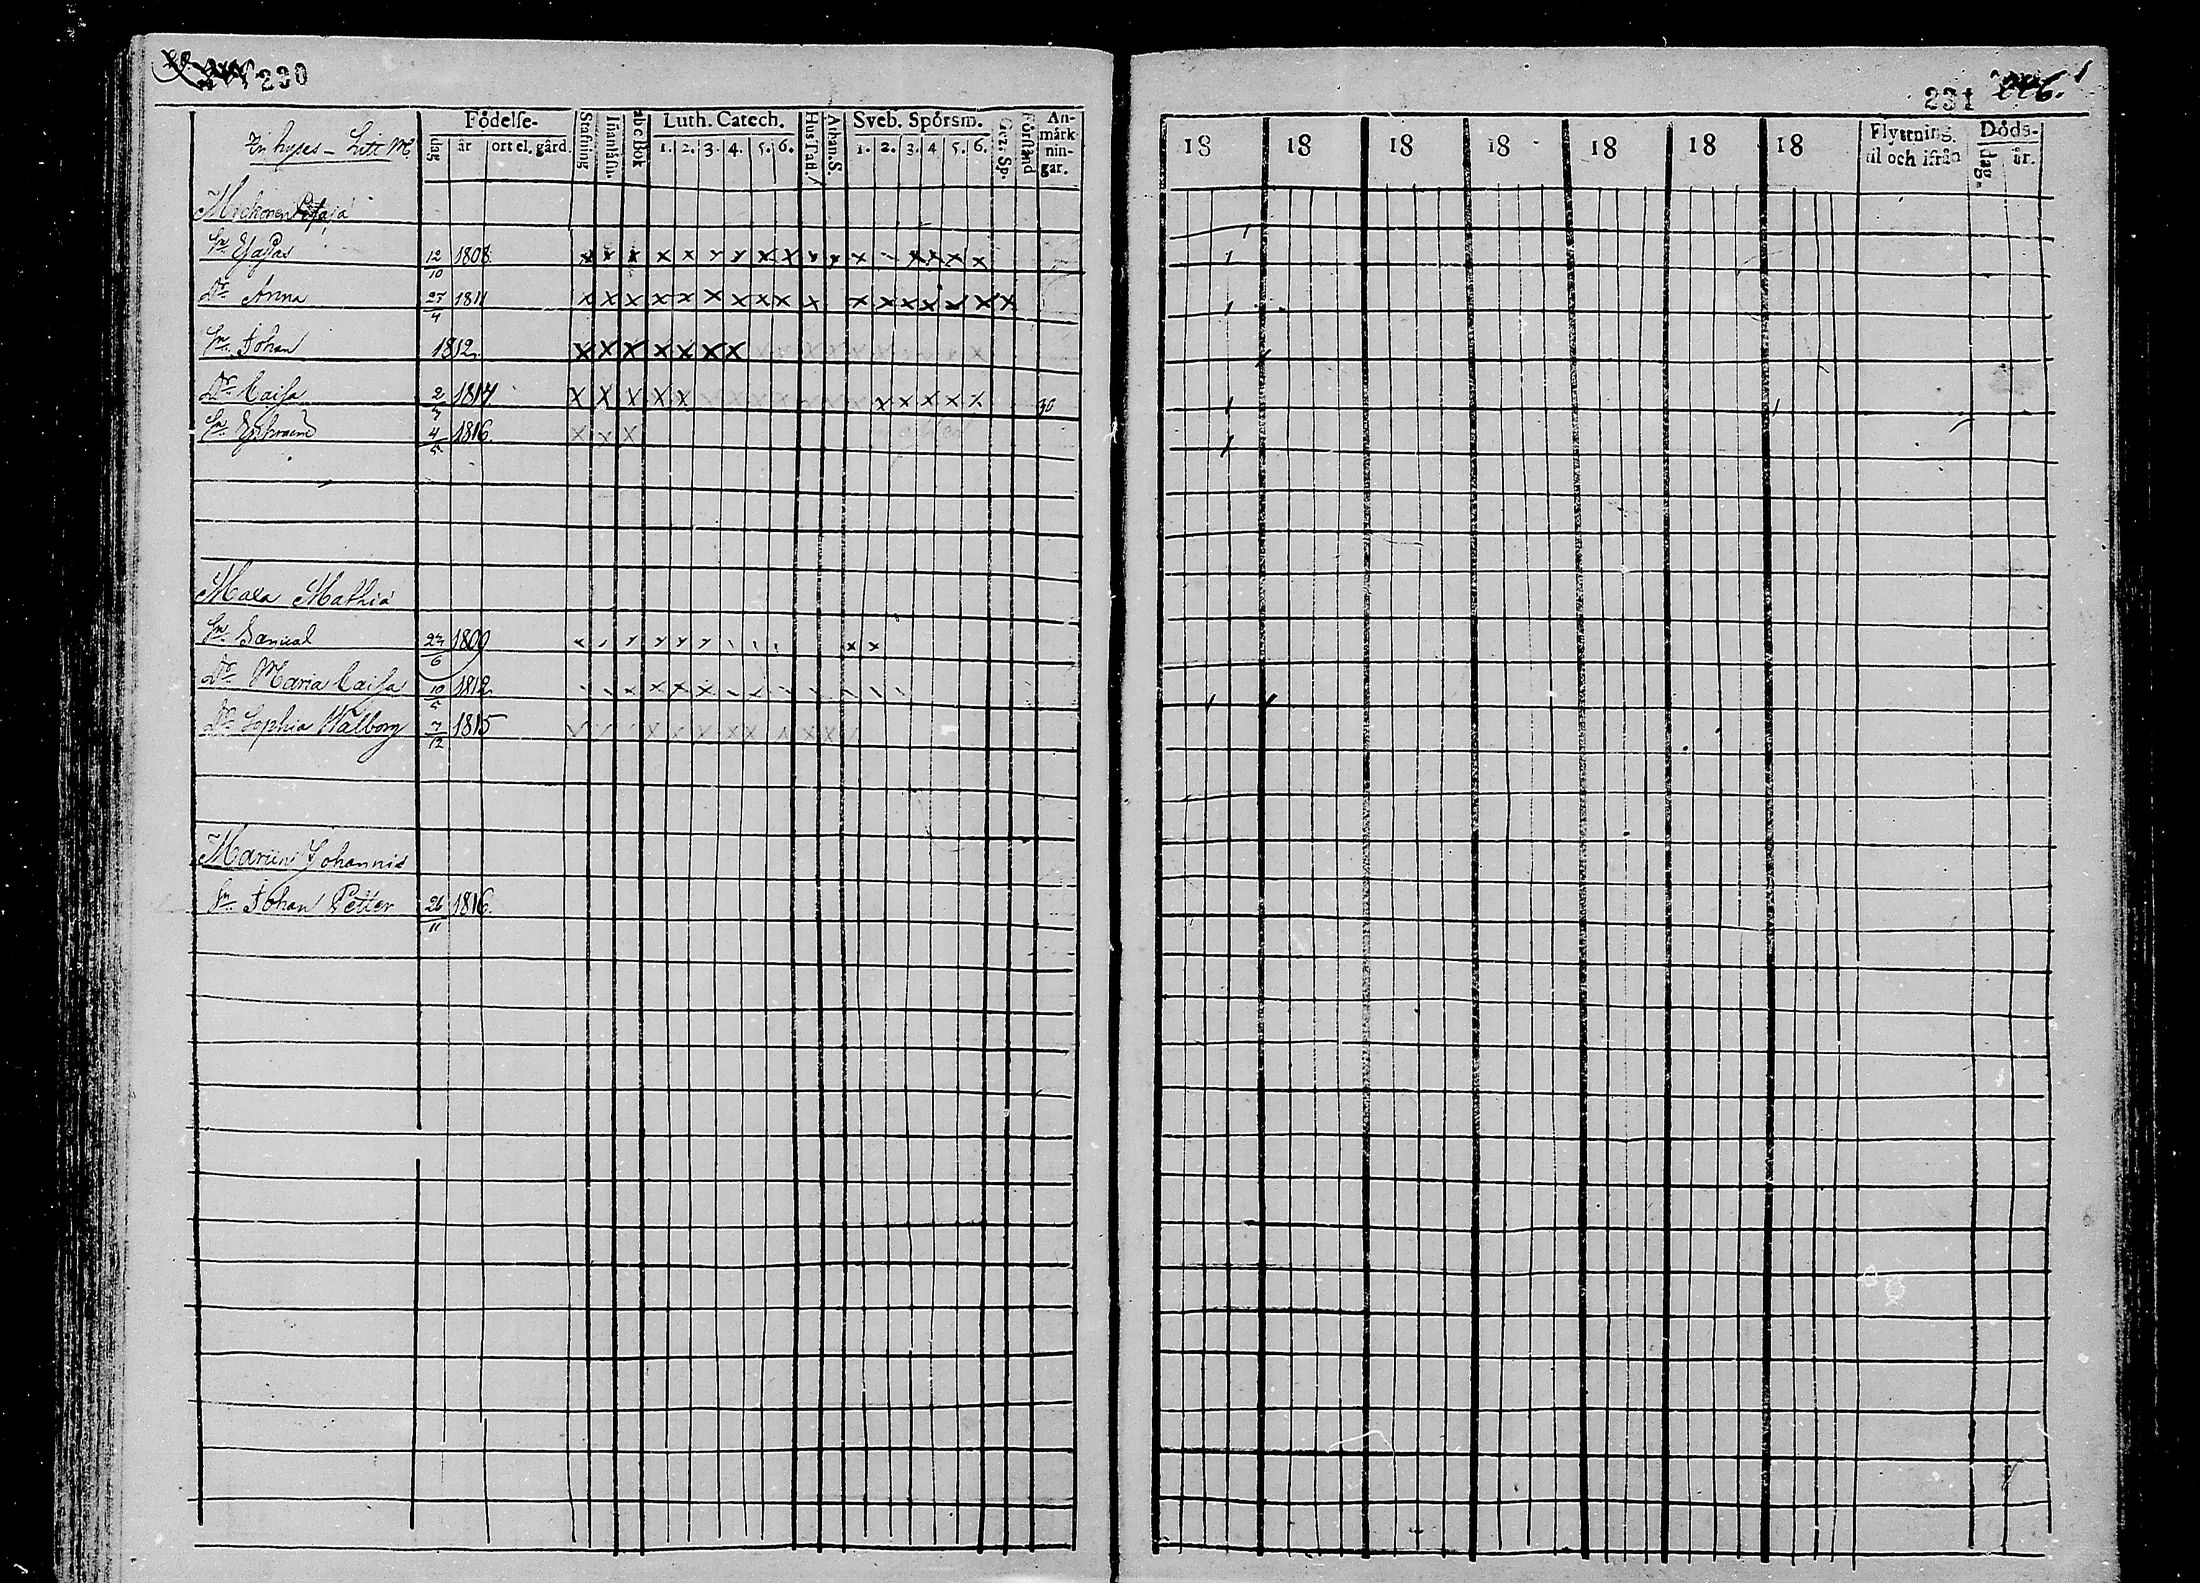 230
Inhyses - Litt M.
Födelse-
dag
år
ort el. gård.
Stafning
Innanläsn.
abc Bok
Luth. Catech.
1. 2. 3. 4. 5. 6.
Hus Tafl.
Athan. S.
Sveb. Spörsm.
1. 2. 3. 4 5. 6.
Gez. Sp.
Förstånd
An-
märk
nin-
gar.
Sn Esajas 12/10 1808 x x x x x x x x x x x x - x x x x
Dr Anna 27/4 1811 x x x x x x x x x x x x x x x x x
Sn Johan 1812 x x x x x x x
Dr Caisa 2/3 1814 x x x x x x x x x x 30
Sn Ephraim 4/5 1816. x x x
Mala Mathias
Sn Samuel 23/6 1809
Dr Maria Caisa 10/5 1812
Dr Sophia Walborg 7/12 1815
Johannis
Sn Johan Petter 26/11 1816.
231
18 18 18 18 18 18 18
Flyttning.
til och ifrån
Döds-
dag.
år.